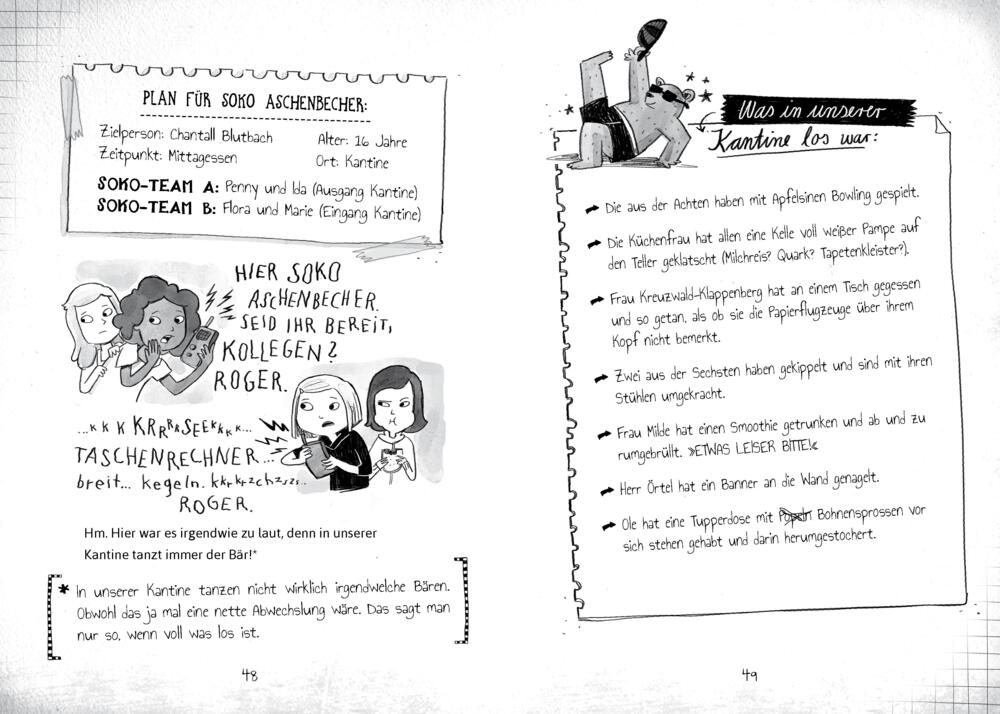 PLAN FÜR SOKO ASCHENBECHER:
Zielperson: Chantall Blutbach
Alter: 16 Jahre
Zeitpunkt: Mittagessen
Ort: Kantine
SOKO-TEAM A: Penny und Ida (Ausgang Kantine)
SOKO-TEAM B: Flora und Marie (Eingang Kantine)
HIER SOKO
ASCHENBECHER.
SEID IHR BEREIT,
KOLLEGEN?
ROGER.
...K K K KRRKKSEEKKKK...
TASCHENRECHNER...
breit... kegeln. kkrkrzchzszs..
ROGER.
Hm. Hier war es irgendwie zu laut, denn in unserer
Kantine tanzt immer der Bär!*
* In unserer Kantine tanzen nicht wirklich irgendwelche Bären.
Obwohl das ja mal eine nette Abwechslung wäre. Das sagt man
nur so, wenn voll was los ist.
48
Was in unserer
Kantine los war:
Die aus der Achten haben mit Apfelsinen Bowling gespielt.
Die Küchenfrau hat allen eine Kelle voll weißer Pampe auf
den Teller geklatscht (Milchreis? Quark? Tapetenkleister?).
Frau Kreuzwald-Klappenberg hat an einem Tisch gegessen
und so getan, als ob sie die Papierflugzeuge über ihrem
Kopf nicht bemerkt.
Zwei aus der Sechsten haben gekippelt und sind mit ihren
Stühlen umgekracht.
Frau Milde hat einen Smoothie getrunken und ab und zu
rumgebrüllt: »ETWAS LEISER BITTE!«
Herr Örtel hat ein Banner an die Wand genagelt.
Ole hat eine Tupperdose mit Popeln Bohnensprossen vor
sich stehen gehabt und darin herumgestochert.
49